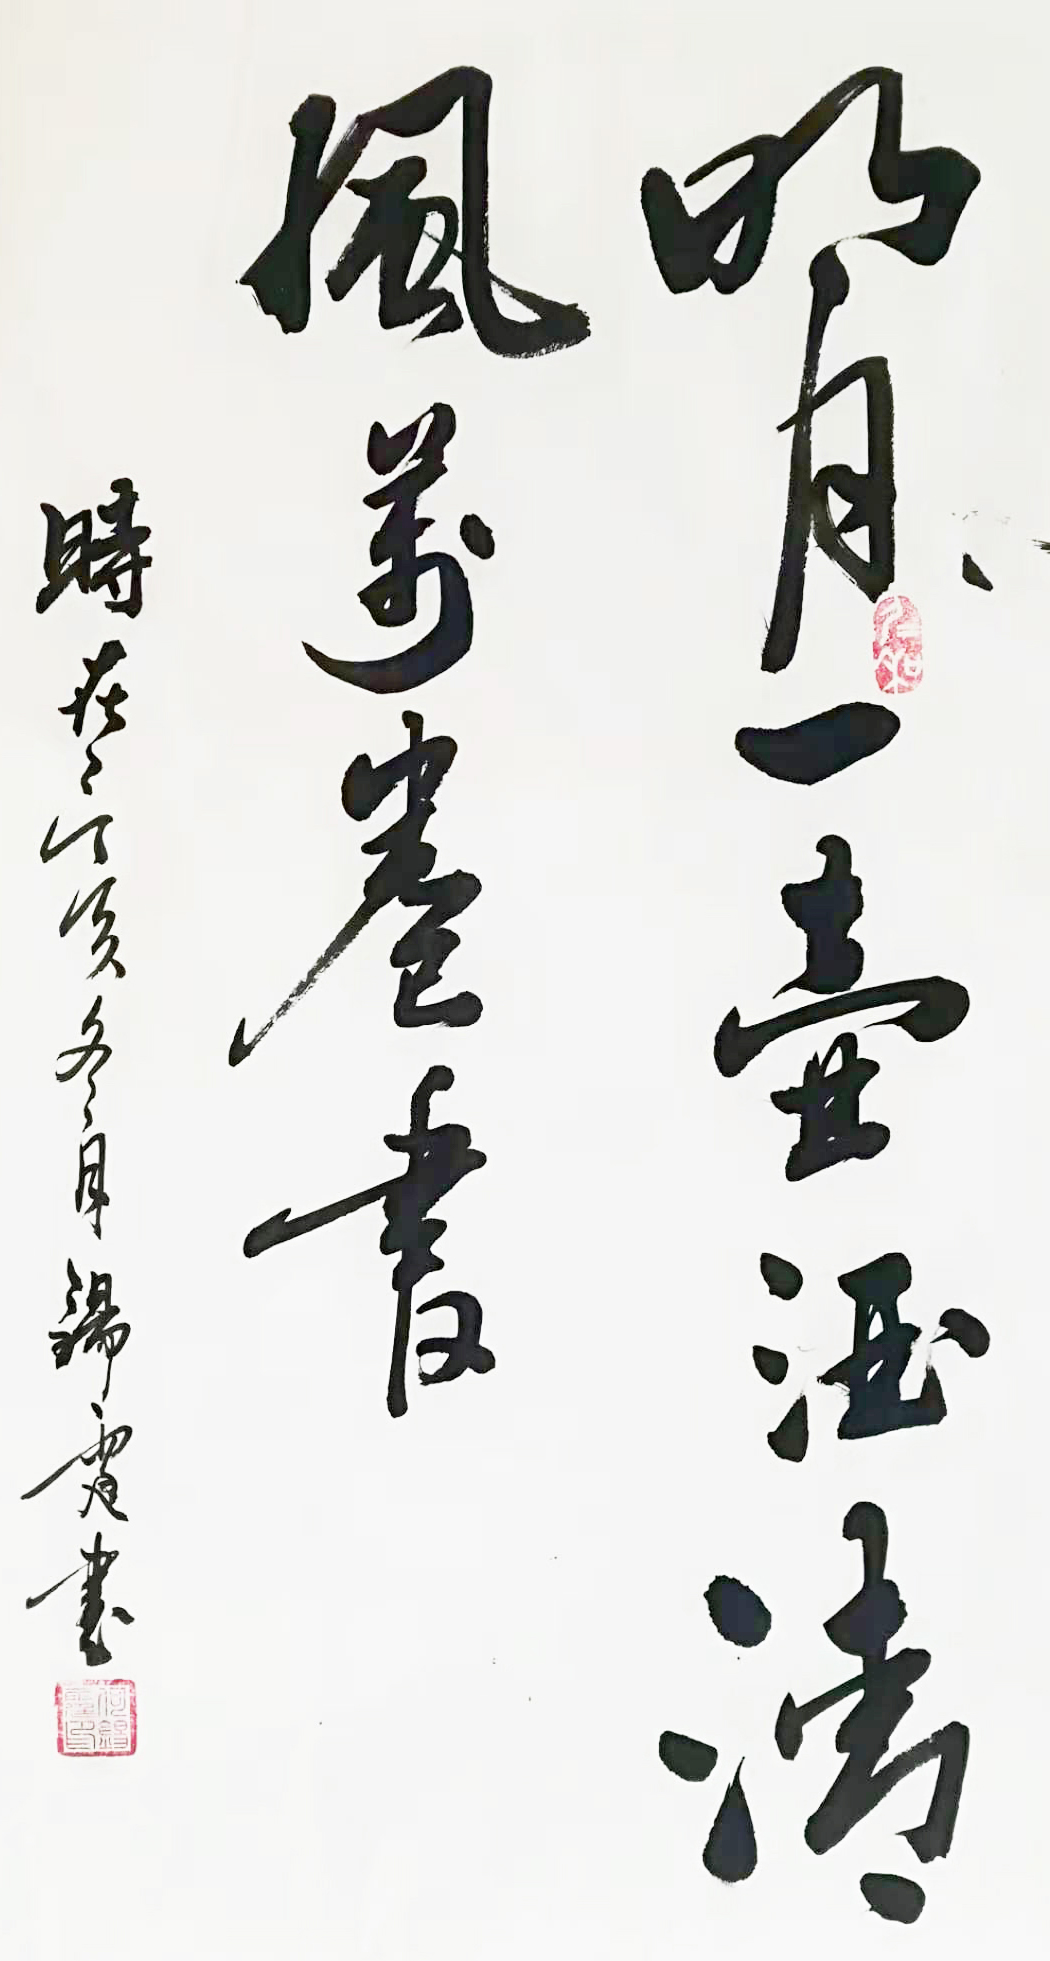 明月一壺酒清
風萬卷書
時在丁亥冬月錫書